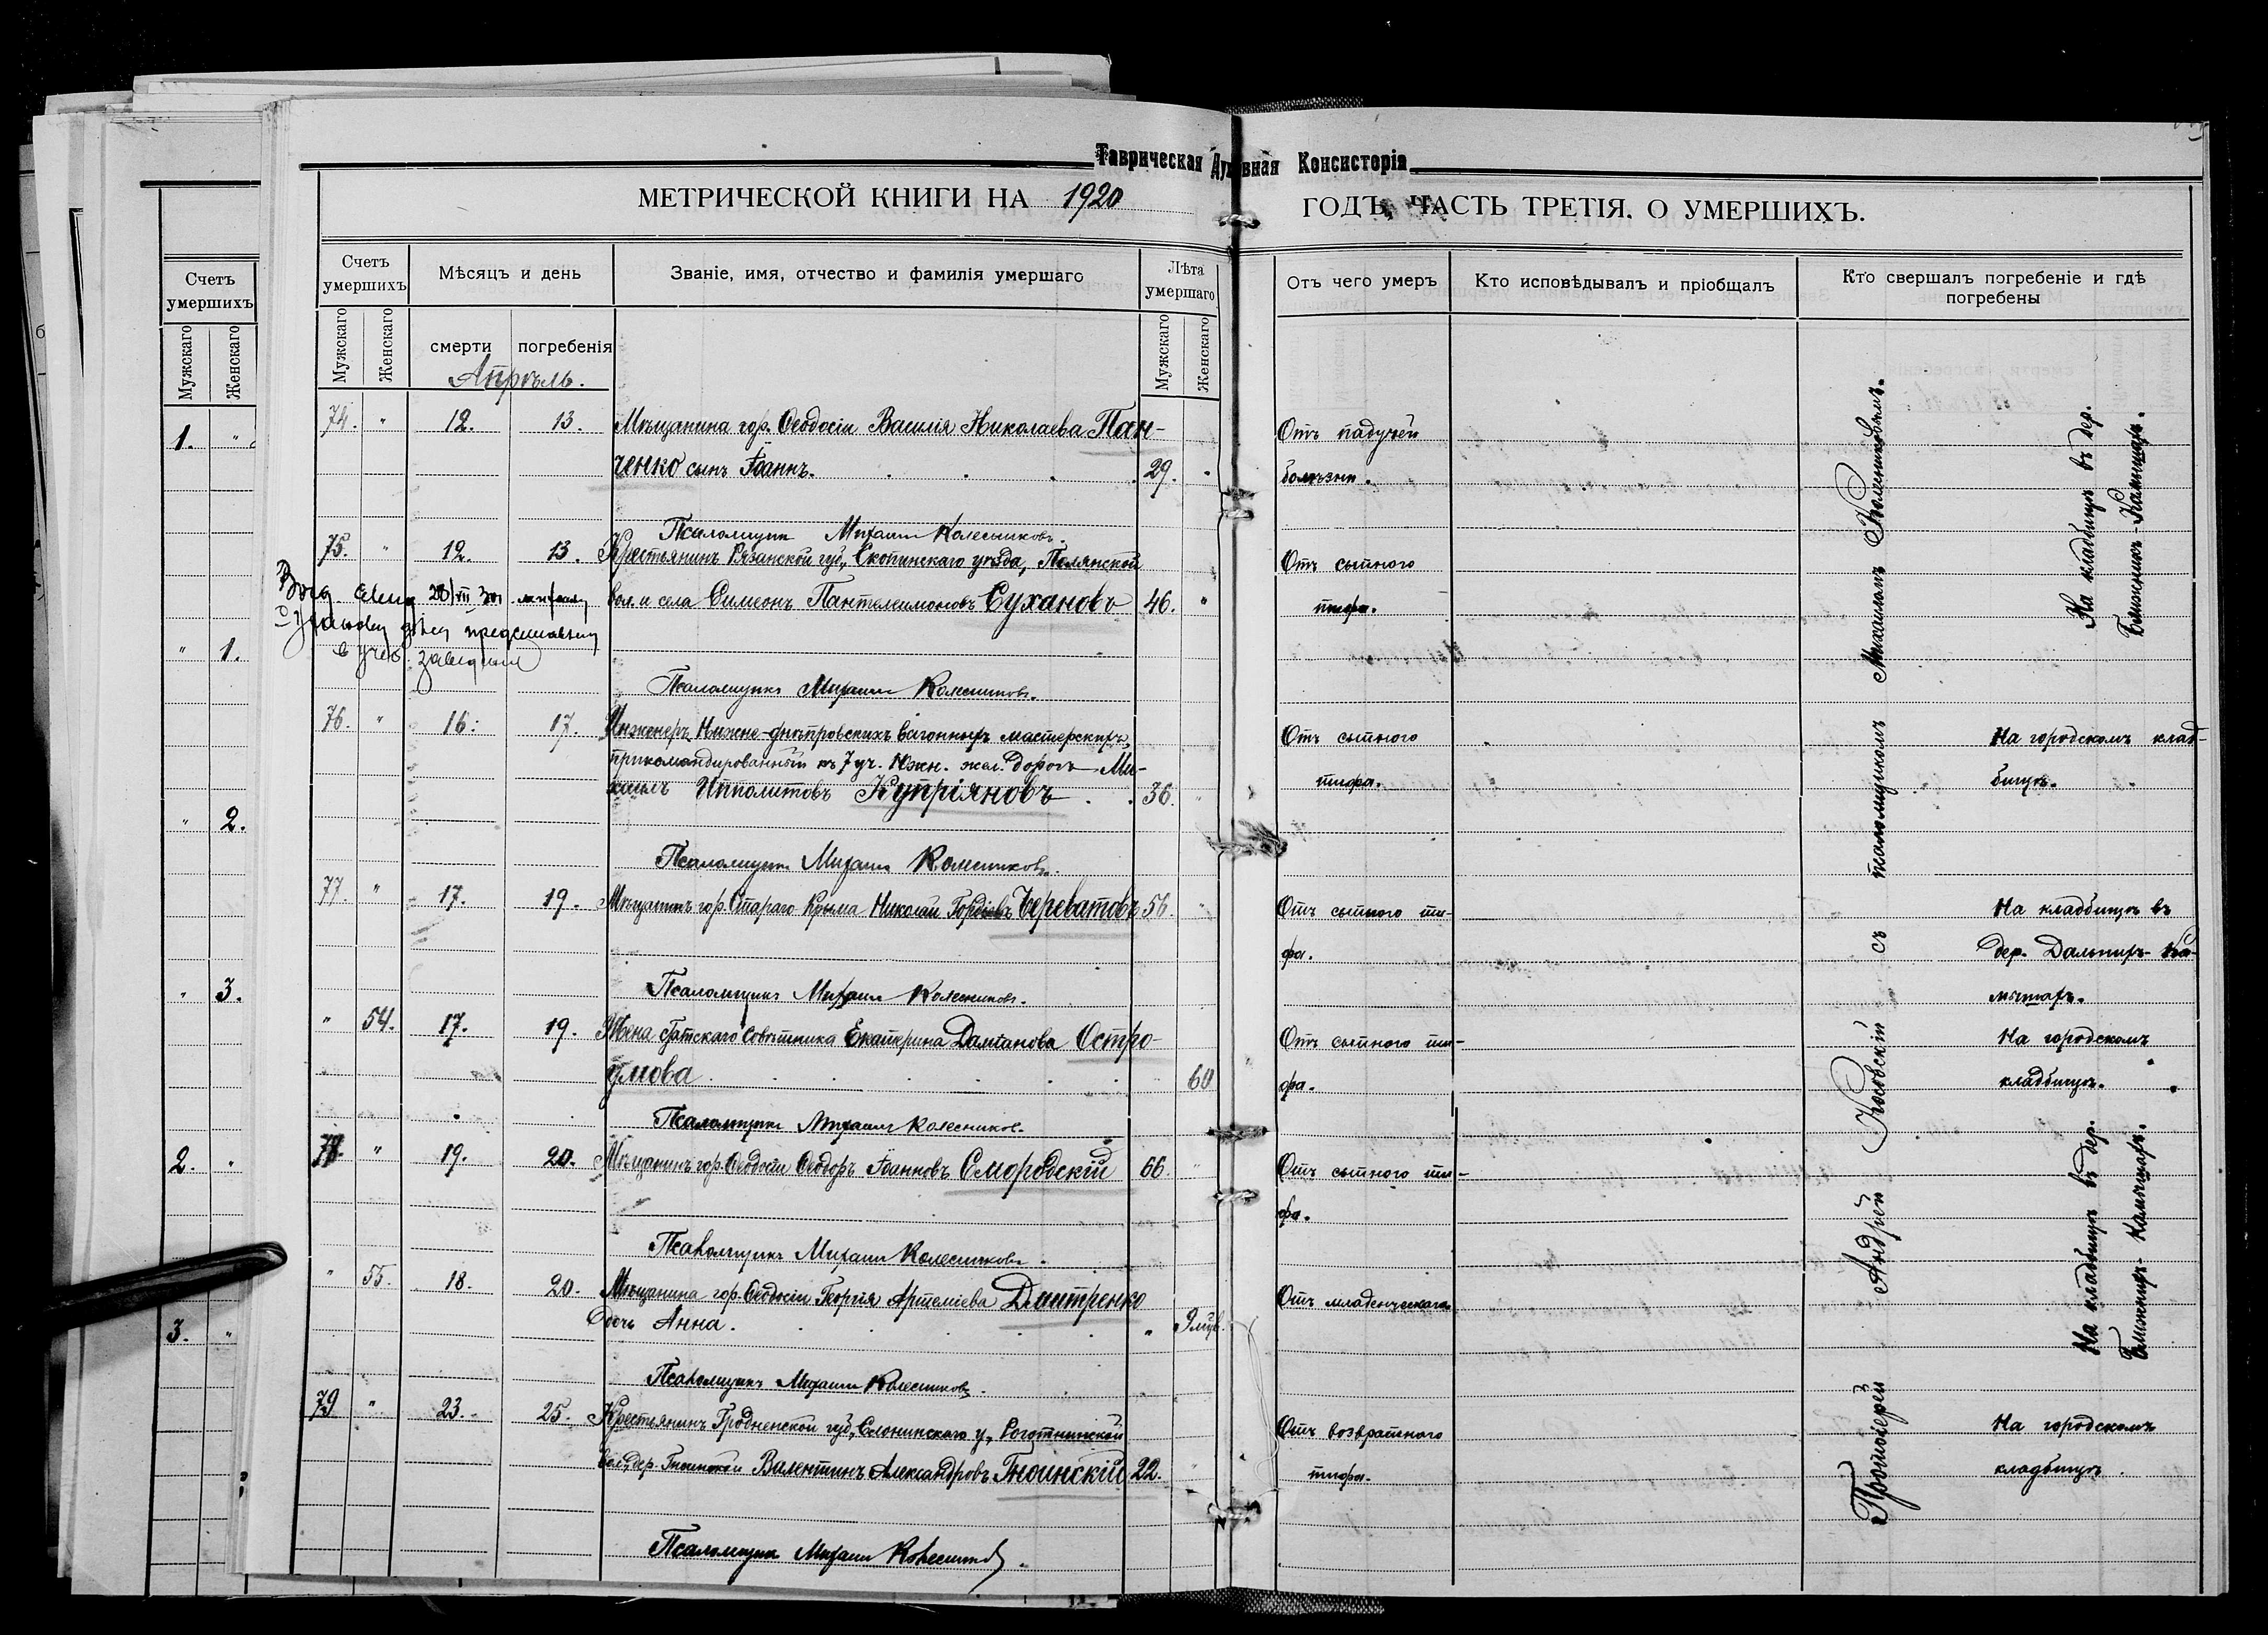 Таврическая Духовная Консисторія
МЕТРИЧЕСКОЙ КНИГИ НА 1920 ГОДЪ, ЧАСТЬ ТРЕТІЯ. О УМЕРШИХЪ.
Счетъ умершихъ
Мужскаго
Женскаго
1. "
" 1.
" 2.
" 3.
2. "
3. "
Счетъ умершихъ
Мужскаго
Женскаго
Мѣсяцъ и день
смерти
погребенія
Званіе, имя, отчество и фамилія умершаго
Лѣта умершаго
Мужскаго
Женскаго
Отъ чего умеръ
Кто исповѣдывалъ и пріобщалъ
Кто свершалъ погребеніе и гдѣ
погребены
Апрѣль.
74. " 12. 13. Мѣщанина гор. Ѳеодосіи Василія Николаева Пан- Отъ падучей
ченко сынъ Іоаннъ. 29. " болѣзни.
Псаломщикъ Михаилъ Колесниковъ.
75. " 12. 13. Крестьянинъ Рязанской губ., Скопинскаго уѣзда, Полянской Отъ сыпного
вол. и села Симеонъ Пантелеимоновъ Сухановъ 46. " тифа.
Псаломщикъ Михаилъ Колесниковъ.
76. " 16. 17. Инженеръ Нижне-днѣпровскихъ вагонныхъ мастерскихъ, Отъ сыпного На городскомъ клад-
прикомандированный къ 7 уч. Южн. жел. дорогъ Ми-
хаилъ Ипполитовъ Купріяновъ 36. " тифа. бищѣ.
Псаломщикъ Михаилъ Колесниковъ.
77. " 17. 19. Мѣщанинъ гор. Стараго Крыма Николай Гордіевъ Череватовъ 56. " Отъ сыпного ти- На кладбищѣ въ
фа. дер. Дальнихъ-Ка-
мышахъ.
Псаломщикъ Михаилъ Колесниковъ.
" 54. 17. 19. Жена Статскаго Совѣтника Екатерина Даміанова Остро- Отъ сыпного ти- На городскомъ
умова 60 фа. кладбищѣ.
Псаломщикъ Михаилъ Колесников.
78. " 19. 20. Мѣщанинъ гор. Ѳеодосіи Ѳеодоръ Іоанновъ Смородскій 66. " Отъ сыпного ти-
фа.
Псаломщикъ Михаилъ Колесниковъ.
" 55. 18. 20. Мѣщанина гор. Ѳеодосіи Георгія Артеміева Дмитренко Отъ младенческаго
дочь Анна. "
Псаломщикъ Михаилъ Колесниковъ.
79 " 23. 25. Крестьянинъ Гродненской губ., Слонимскаго у., Роготнинской Отъ возвратнаго На городскомъ
вол., дер. Валентинъ Александровъ Гноинскій 22. " тифа. кладбищѣ.
Псаломщикъ Михаилъ Колесниковъ.
Протоіерей Андрей Косовскій съ псаломщикомъ Михаиломъ Колесниковымъ.
На кладбищѣ въ дер.
Ближнихъ-Камышахъ.
На кладбищѣ въ дер.
Ближнихъ-Камышахъ.